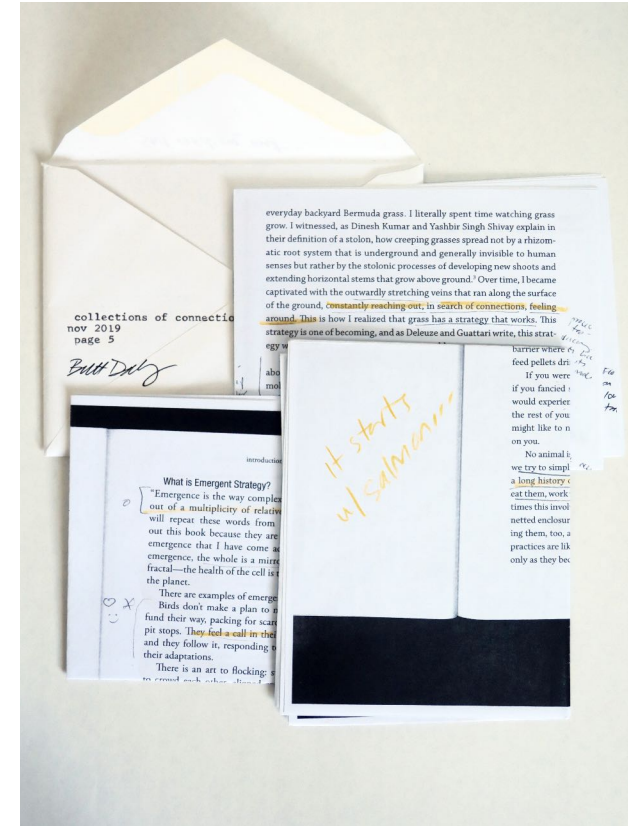 everyday backyard Bermuda grass. I literally spent time watching grass
grow. I witnessed, as Dinesh Kumar and Yashbir Singh Shivay explain in
their definition of a stolon, how creeping grasses spread not by a rhizom-
atic root system that is underground and generally invisible to human
senses but rather by the stolonic processes of developing new shoots and
extending horizontal stems that grow above ground.³ Over time, I became
captivated with the outwardly stretching veins that ran along the surface
of the ground, constantly reaching out, in search of connections, feeling
around. This is how I realized that grass has a strategy that works. This
strategy is one of becoming, and as Deleuze and Guattari write, this strat-
egy w
abo
mol
collections of connectio
nov 2019
page 5
barrier where
feed pellets dri
If you were
if you fancied
would experien
the rest of you
might like to n
on you.
No animal is
we try to simpl
a long history
eat them, work
times this invol
netted enclosur
ing them, too, a
practices are lik
only as they bec
it starts
w/ salmon...
introduction
What is Emergent Strategy?
"Emergence is the way complex
out of a multiplicity of relative
will repeat these words from
out this book because they are
emergence that I have come ac
emergence, the whole is a mirro
fractal—the health of the cell is t
the planet.
There are examples of emerge
Birds don't make a plan to m
fund their way, packing for scarc
pit stops. They feel a call in thei
and they follow it, responding to
their adaptations.
There is an art to flocking: s